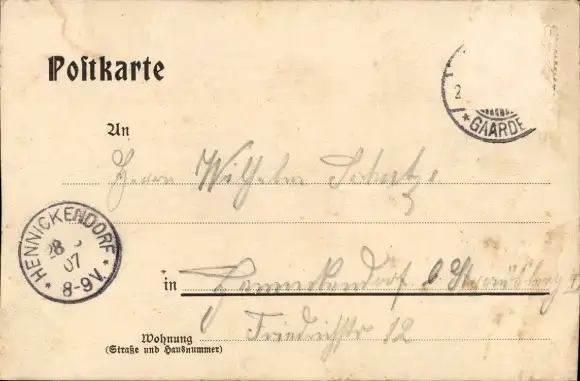 Postkarte
2
* GAARDE
An
Herrn Wilhelm Schulze
* HENNICKENDORF *
28
07
8-9V.
in Hennickendorf b Strausberg
Wohnung
(Straße und Hausnummer)
Friedrichstr 12